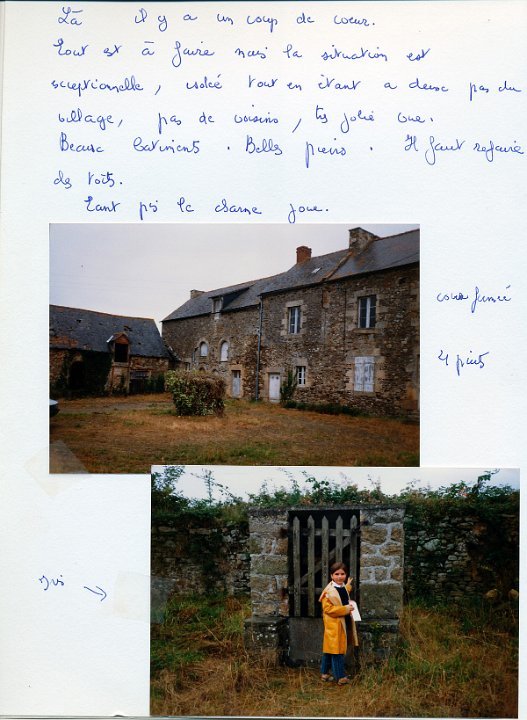 Là il y a un coup de coeur.
Tout est à faire mais la situation est
exceptionnelle, isolé tout en étant a deux pas du
village, pas de voisins, très jolie vue.
Beaux batiments. Belles pierres. Il faut refaire
des toits.
Tant pis le charme joue.
cour fermée
4 puits